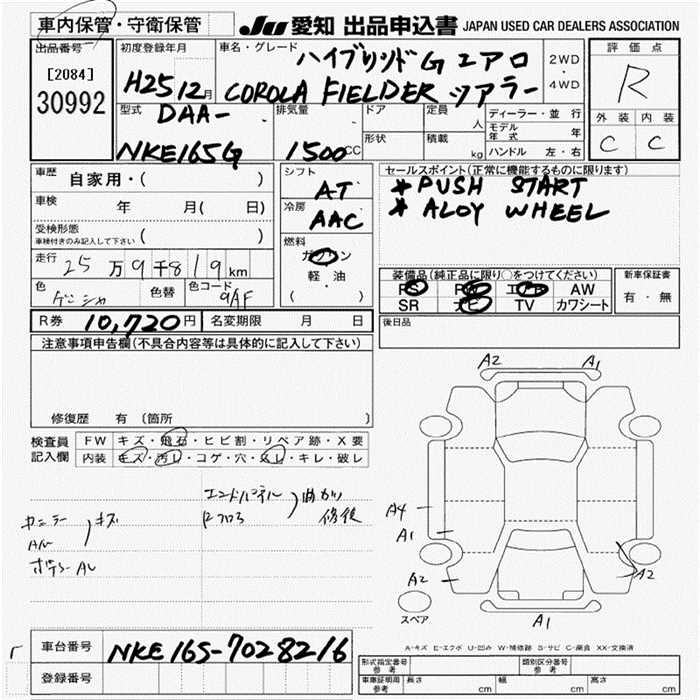 車内保管・守衛保管
JU 愛知 出品申込書 JAPAN USED CAR DEALERS ASSOCIATION
出品番号
[2084]
30992
初度登録年月
H25 12月
車名・グレード
ハイブリッドG エアロ
COROLA FIELDER ツアラー
2WD
・
4WD
評価点
R
外装 内装
C C
型式
DAA-
NKE165G
排気量
1500cc
ドア
形状
定員 人
積載 kg
ディーラー・並行
モデル年式 年
ハンドル 左・右
車歴 自家用・( )
車検 年 月( 日)
受検形態
車検付きのみ記入して下さい ( )
走行 25万9千819km
色 ゲンシャ 色替 色コード 9AF
R券 10,720円 名変期限 月 日
シフト
AT
冷房
AAC
燃料
ガソリン
軽・油
( ・ )
セールスポイント(正常に機能するものに限ります)
* PUSH START
* ALOY WHEEL
装備品(純正品に限り○をつけてください)
PS PW エアB AW
SR ナビ TV カワシート
新車保証書
有・無
後日品
注意事項申告欄(不具合内容等は具体的に記入して下さい)
修復歴 有 (箇所 )
検査員記入欄
FW キズ・飛石・ヒビ割・リペア跡・X要
内装 キズ・汚レ・コゲ・穴・スレ・キレ・破レ
エンドパネル
Rフロア
曲ガリ
修復
キズ
A2 A1
A4
A1
A2
A2
A1
スペア
A-キズ E-エクボ U-凹み W-補修跡 S-サビ C-腐食 XX-交換済
車台番号 NKE165-7028216
登録番号
形式指定番号 参考
類別区分番号 参考
車庫証明用 参考 長さ cm 幅 cm 高さ cm